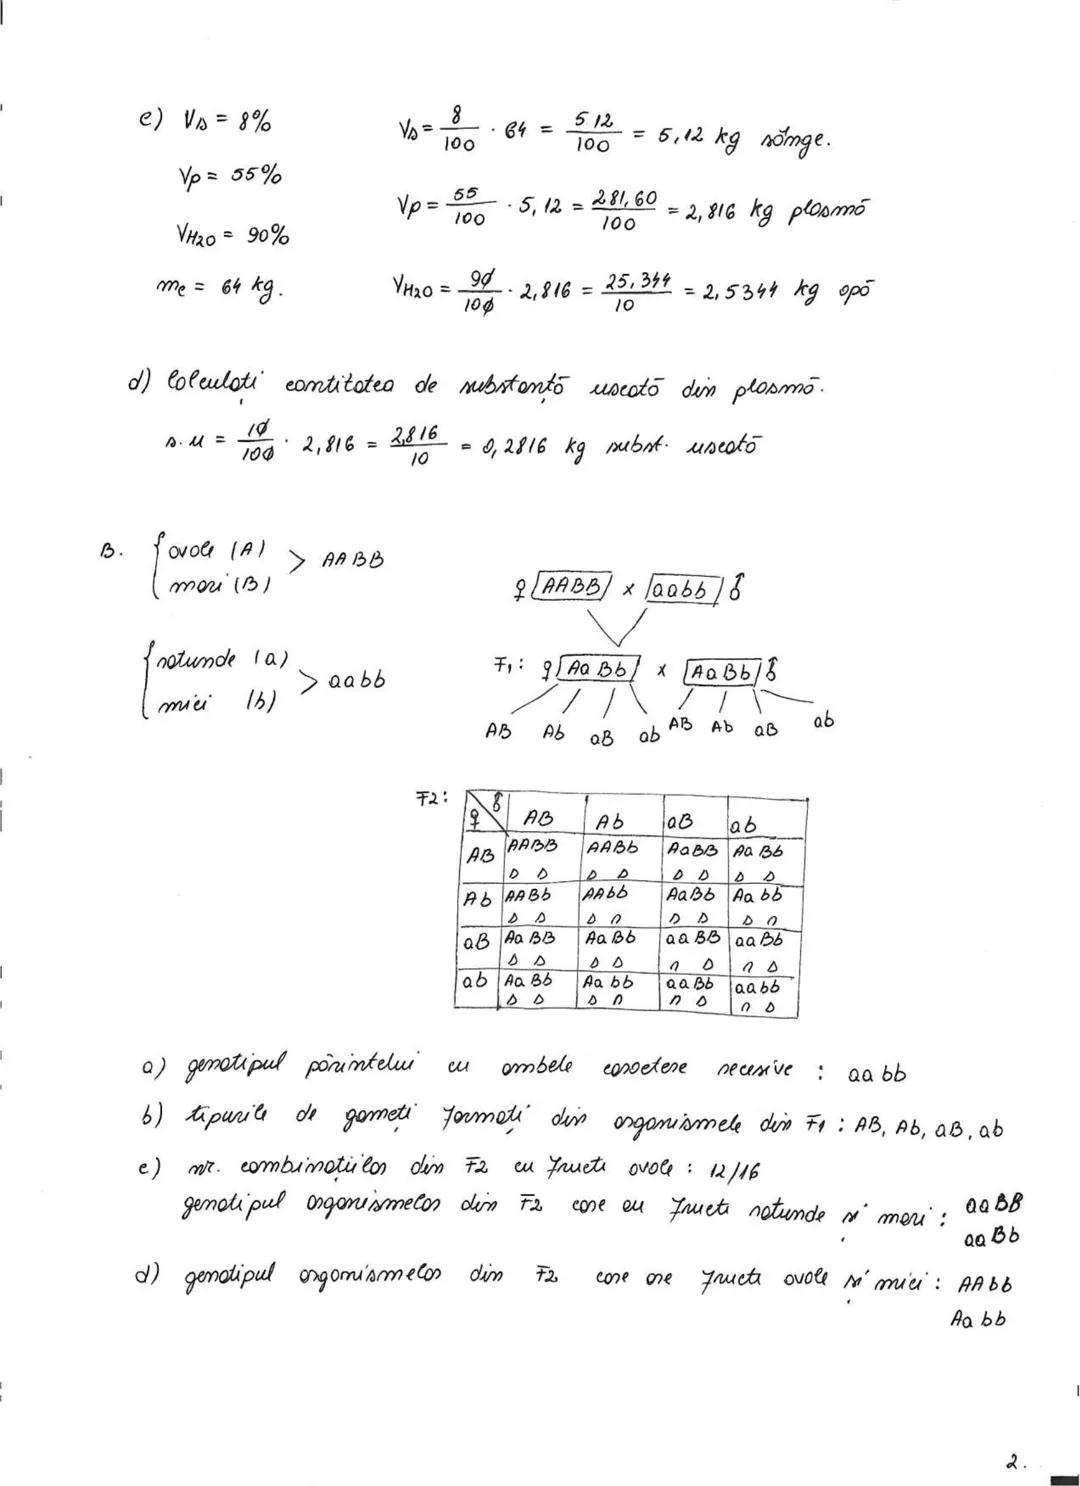 c) Vs = 8%
Vs = 8/100 · 64 = 512/100 = 5,12 kg sânge.
Vp = 55%
Vp = 55/100 · 5,12 = 281,60/100 = 2,816 kg plasmă
VH2O = 90%
me = 64 kg.
VH2O = 90/100 · 2,816 = 25,344/10 = 2,5344 kg apă
d) Calculați cantitatea de substanță uscată din plasmă.
s.u = 10/100 · 2,816 = 2,816/10 = 0,2816 kg subst. uscată
B. { ovale (A)
mari (B) > AABB
♀ AABB x aabb ♂
{ rotunde (a)
mici (b) > aabb
F1: ♀ AaBb x AaBb ♂
AB Ab aB ab AB Ab aB ab
F2:
♀ ♂ AB Ab aB ab
AB AABB AABb AaBB AaBb
D D D D D D D D
Ab AABb AAbb AaBb Aabb
D D D n D D D n
aB AaBB AaBb aaBB aaBb
D D D D n D n D
ab AaBb Aabb aaBb aabb
D D D n n D n D
a) genotipul părintelui cu ambele caractere recesive : aabb
b) tipurile de gameți formați din organismele din F1 : AB, Ab, aB, ab
c) nr. combinațiilor din F2 cu fructe ovale : 12/16
genotipul organismelor din F2 care au fructe rotunde și mari : aaBB
aaBb
d) genotipul organismelor din F2 care are fructe ovale și mici : AAbb
Aabb
2.